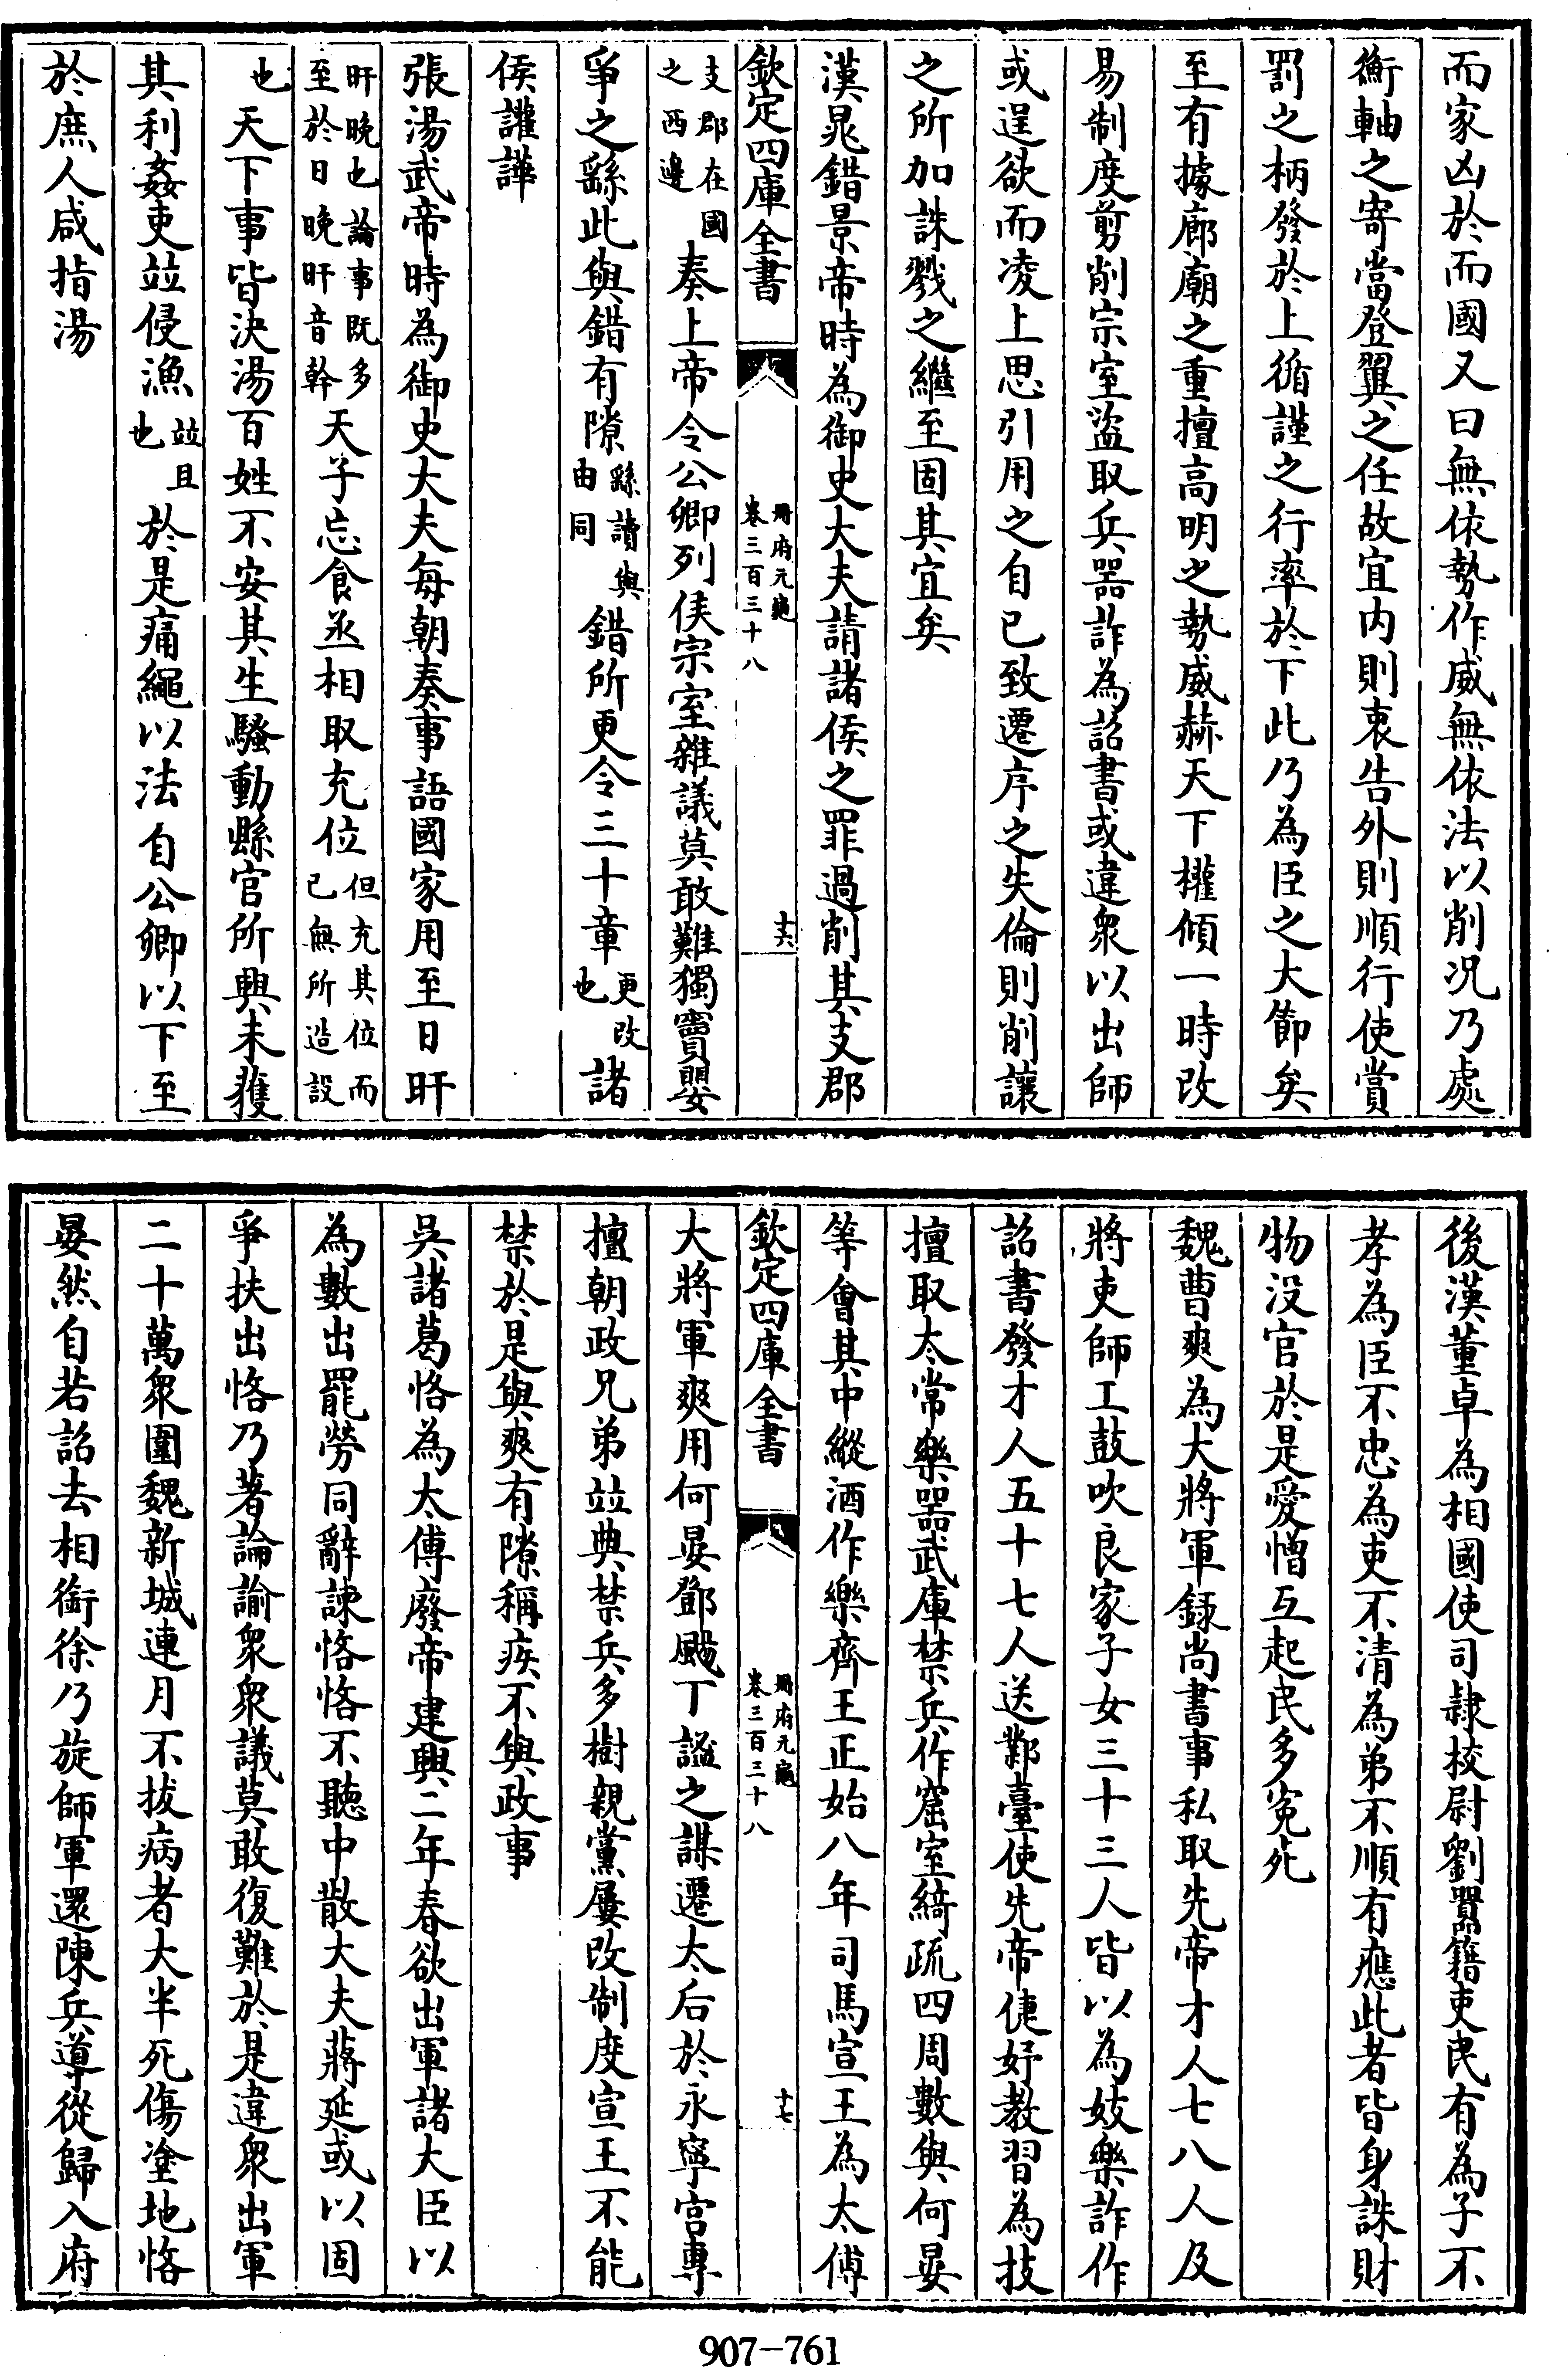 而家凶於而國又曰無依勢作威無依法以削况乃處
衡軸之寄當登翼之任故宜内則衷告外則順行使賞
罰之柄發於上循謹之行率於下此乃為臣之大節矣
至有據廊廟之重擅高明之勢威赫天下權傾一時改
易制度剪削宗室盜取兵器詐為詔書或違衆以出師
或逞欲而凌上思引用之自已致遷序之失倫則削讓
之所加誅戮之繼至固其宜矣
漢晁錯景帝時為御史大夫請諸侯之罪過削其支郡
欽定四庫全書
冊府元龜
卷三百三十八
十六
支郡在國
之西邊
奏上帝令公卿列侯宗室雜議莫敢難獨竇嬰
爭之繇此與錯有隙
繇讀與
由同
錯所更令三十章
更改
也
諸
侯讙譁
張湯武帝時為御史大夫每朝奏事語國家用至日旰
旰晚也論事既多
至於日晚旰音幹
天子忘食丞相取充位
但充其位而
已無所造設
也
天下事皆決湯百姓不安其生騷動縣官所興未獲
其利姦吏竝侵漁
竝且
也
於是痛繩以法自公卿以下至
於庶人咸指湯
後漢董卓為相國使司隸校尉劉囂籍吏民有為子不
孝為臣不忠為吏不清為弟不順有應此者皆身誅財
物没官於是愛憎互起民多寃死
魏曹爽為大將軍錄尚書事私取先帝才人七八人及
將吏師工鼓吹良家子女三十三人皆以為妓樂詐作
詔書發才人五十七人送鄴臺使先帝倢妤教習為技
擅取太常樂器武庫禁兵作窟室綺疏四周數與何晏
等會其中縱酒作樂齊王正始八年司馬宣王為太傅
欽定四庫全書
冊府元龜
卷三百三十八
十七
大將軍爽用何晏鄧颺丁謐之謀遷太后於永寧宮專
擅朝政兄弟竝典禁兵多樹親黨屢改制度宣王不能
禁於是與爽有隙稱疾不與政事
吳諸葛恪為太傅廢帝建興二年春欲出軍諸大臣以
為數出罷勞同辭諫恪恪不聽中散大夫蔣延或以固
爭扶出恪乃著論諭衆衆議莫敢復難於是違衆出軍
二十萬衆圍魏新城連月不拔病者大半死傷塗地恪
晏然自若詔去相銜徐乃旋師軍還陳兵導從歸入府
907-761